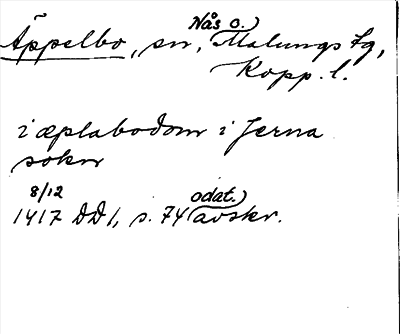 Nås o.)
Äppelbo, sn, Malungs tg,
Kopp. l.
i æplabodom i Jerna
sokn
8/12 odat.)
1417 DD 1, s. 74 avskr.